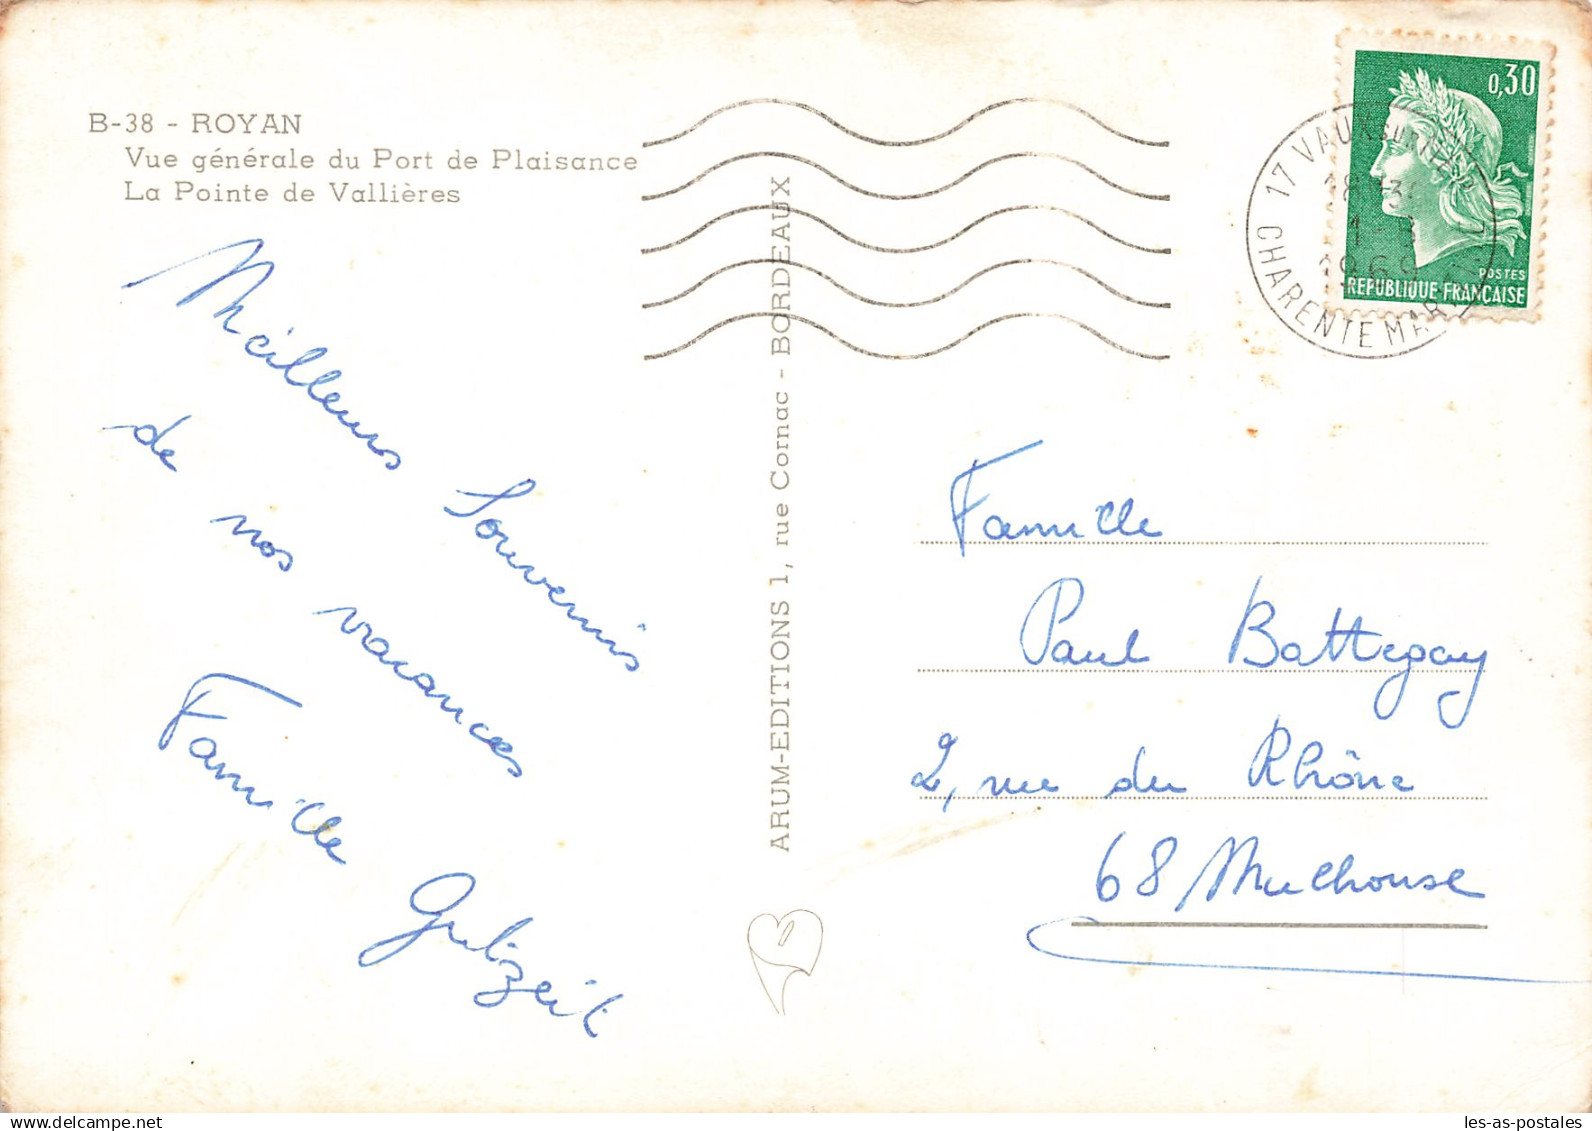 B-38 - ROYAN
Vue générale du Port de Plaisance
La Pointe de Vallières
Meilleurs Souvenirs
de nos vacances
Famille Gutzeit
ARUM-EDITIONS 1, rue Cornac - BORDEAUX
0,30
POSTES
REPUBLIQUE FRANÇAISE
17 VAUX SUR MER
1969
CHARENTE MARITIME
Famille
Paul Battegay
2, rue du Rhône
68 Mulhouse
les-as-postales